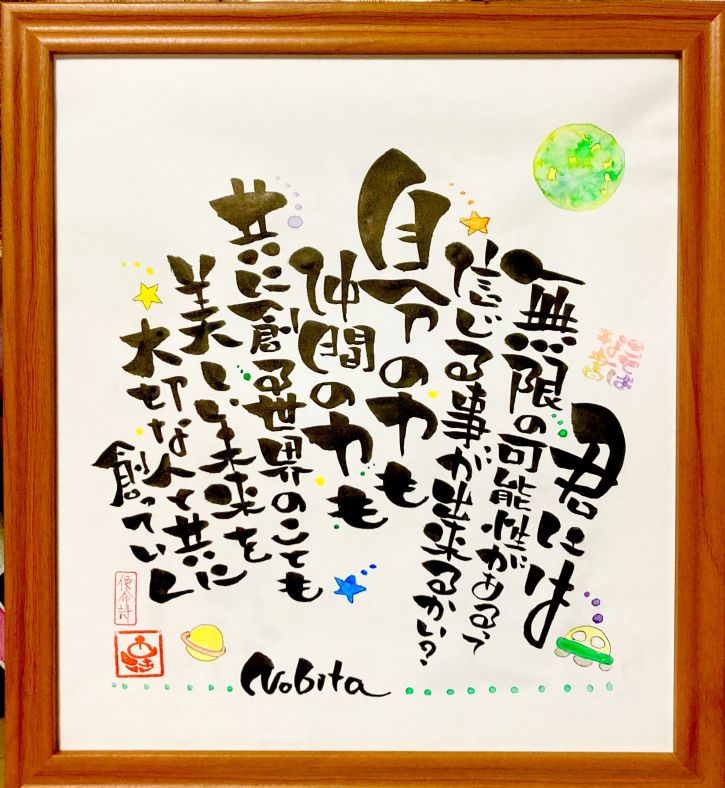 君には
無限の可能性があるって
信じる事が出来るかい?
自分の力も
仲間の力も
共に創る世界のことも
美しい未来を
大切な人と共に
創っていく
使命詩
Nobita